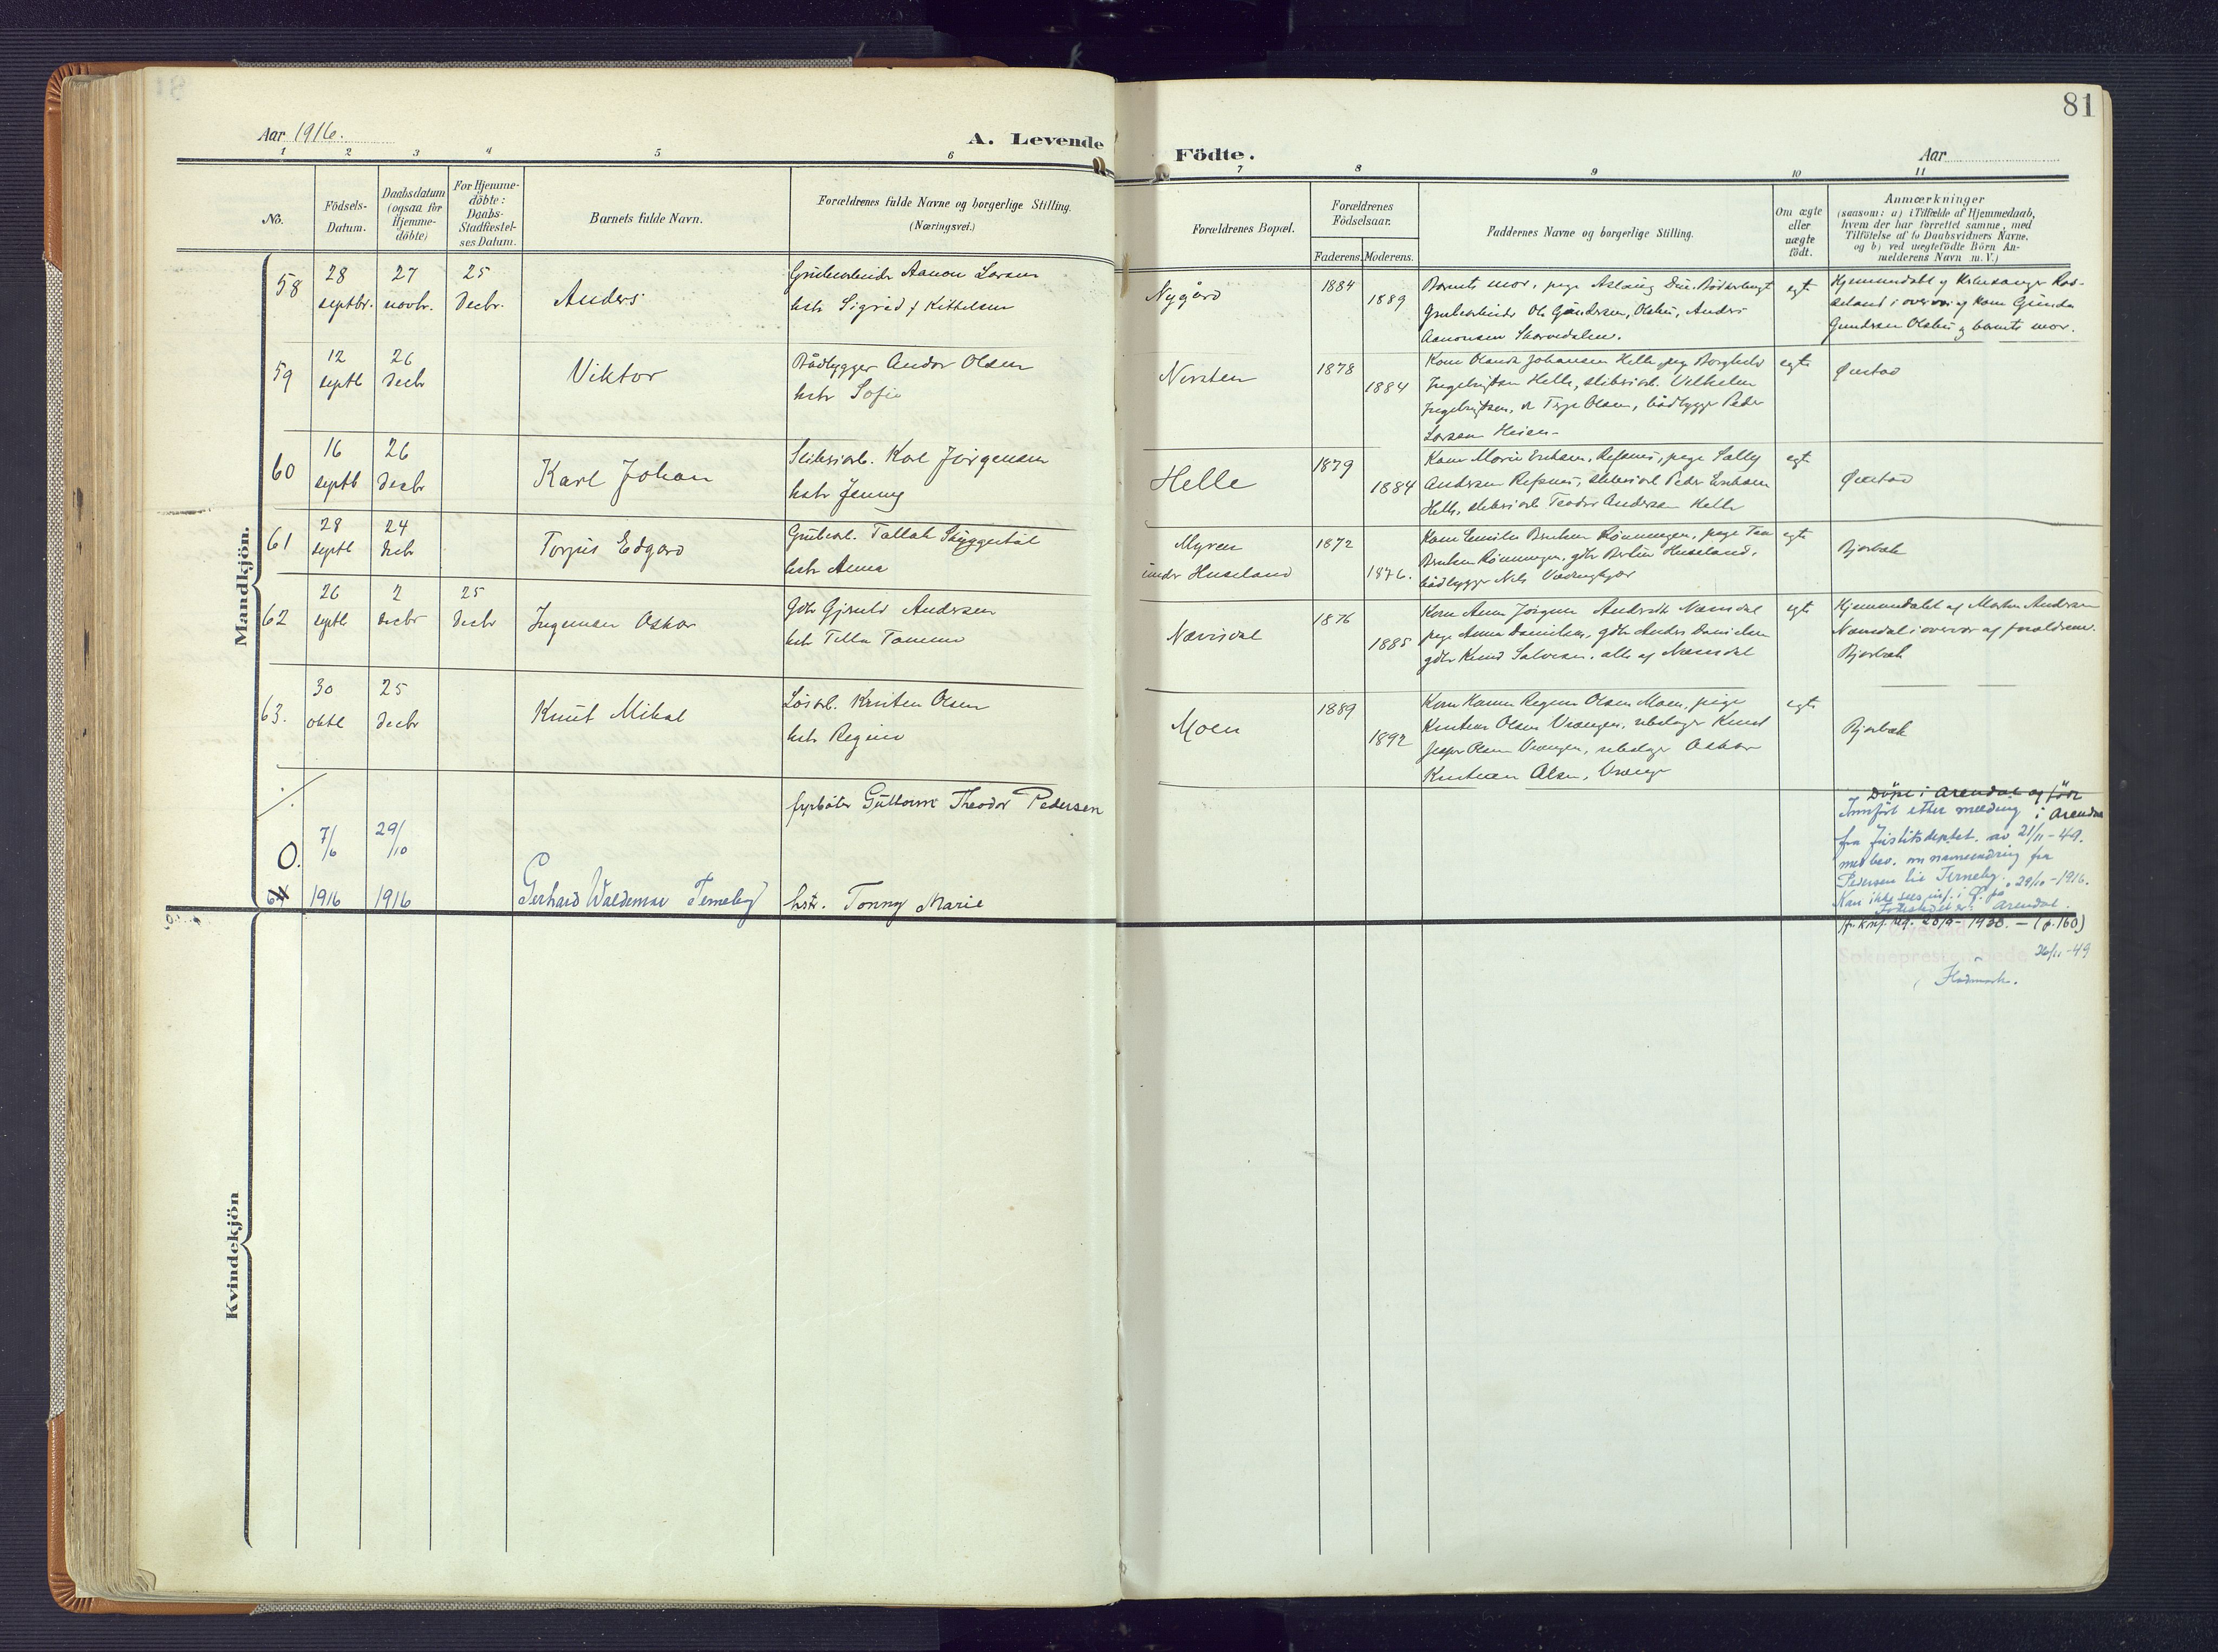 81
Aar 1916.
A. Levende
Födte.
Aar
1 2 3 4 5 6 7 8 9 10 11
No.
Födsels-
Datum.
Daabsdatum
(ogsaa for
Hjemme-
döbte)
For Hjemme-
döbte:
Daabs-
Stadfæstel-
ses Datum.
Barnets fulde Navn.
Forældrenes fulde Navne og borgerlige Stilling.
(Næringsvei.)
Forældrenes Bopæl.
Forældrenes
Födselsaar.
Faderens. Moderens.
Faddernes Navne og borgerlige Stilling.
Om ægte
eller
uægte
födt.
Anmærkninger
(saasom: a) i Tilfælde af Hjemmedaab,
hvem der har forrettet samme, med
Tilföielse af to Daabsvidners Navne,
og b) ved uægtefödte Börn An-
melderens Navn m. V.)
Mandkjön.
58
28
septbr.
27
novbr.
25
decbr.
Anders
Grubearbeider Aanon Larsen
hstr Sigrid f Kittelsen
Nygård
1884
1889
Barnets mor, pige Aslaug
Grubearbeider Ole Gundersen, Olsbu, Anders
Aanonsen
egte
Hjemmedøbt af Kirkesanger
i overvær af Kone Gunda
Gundersen Olsbu og barnets mor.
59
12
septb
26
decbr
Viktor
Bådbygger Andor Olsen
hstr Sofie
Nersten
1878
1884
Kone Olanda Johansen Helle, pige Borghild
Ingebrigtsen Helle, sliberiarb. Vilhelm
Ingebrigtsen, Terje Olsen, bådbygger Peder
Larsen
egte
Øiestad
60
16
septb
26
decbr
Karl Johan
Sliberiarb. Karl Jörgensen
hstr Jenny
Helle
1879
1884
Kone Marie Eriksen, Refsnes, pige Sally
Andersen Refsnes, sliberiarb Peder Eriksen
Helle, sliberiarb Teodor Andersen Helle
egte
Øiestad
61
28
septb
24
decbr
Torjus Edgard
Grubearb. Tallak Skyggestöl
hstr Anna
Myren
under Huseland
1872
1876.
Kone Emilie Bentsen Rönningen, pige Tea
Bentsen Rönningen, gdbr Huseland,
bådbygger Nils
egte
Bjorbæk
62
26
septb
2
decbr
25
decbr
Ingeman Oskar
Gdbr Gjeruld Andersen
hstr Tilla Tomine
Nævisdal
1876
1885
Kone Anna Jörgine Andersdt Nævisdal
pige Anna Danielsen, gdbr Anders Danielsen
gdbr Knud Salvesen, alle af Nævisdal
egte
Hjemmedøbt af Morten Andersen
Nævisdal i overvær af forældrene.
Bjorbæk
63.
30
oktb
25
decbr
Knut Mikal
Løsarb. Kristen Olsen
hstr Regine
Moen
1889
1892
Kone Karen Regine Olsen Moen, pige
Kristine Olsen Vrængen, Knut
Jesper Olsen Vrængen, Oskar
Kristian Olsen, Vrænge
egte
Bjorbæk
0.
64
7/6
1916
29/10
1916
Gerhard Waldemar Terneby
fyrbøter Guttorm Theodor Pedersen
hstr. Tonny Marie
Døpt i Arendal og født
i Arendal
Innført etter melding
fra Justitsdeptet. av 21/11-49.
med bev. om navneendring fra
Pedersen til Terneby.
Kan ikke sees innf. i Ø. på 29/10-1916.
Fødestedet er: Arendal.
(p. 160)
26/11-49
Kvindekjön